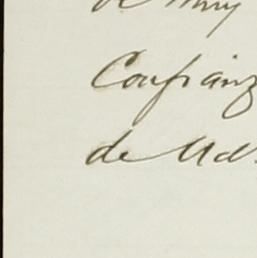 de muy
Confianz
de Ud.